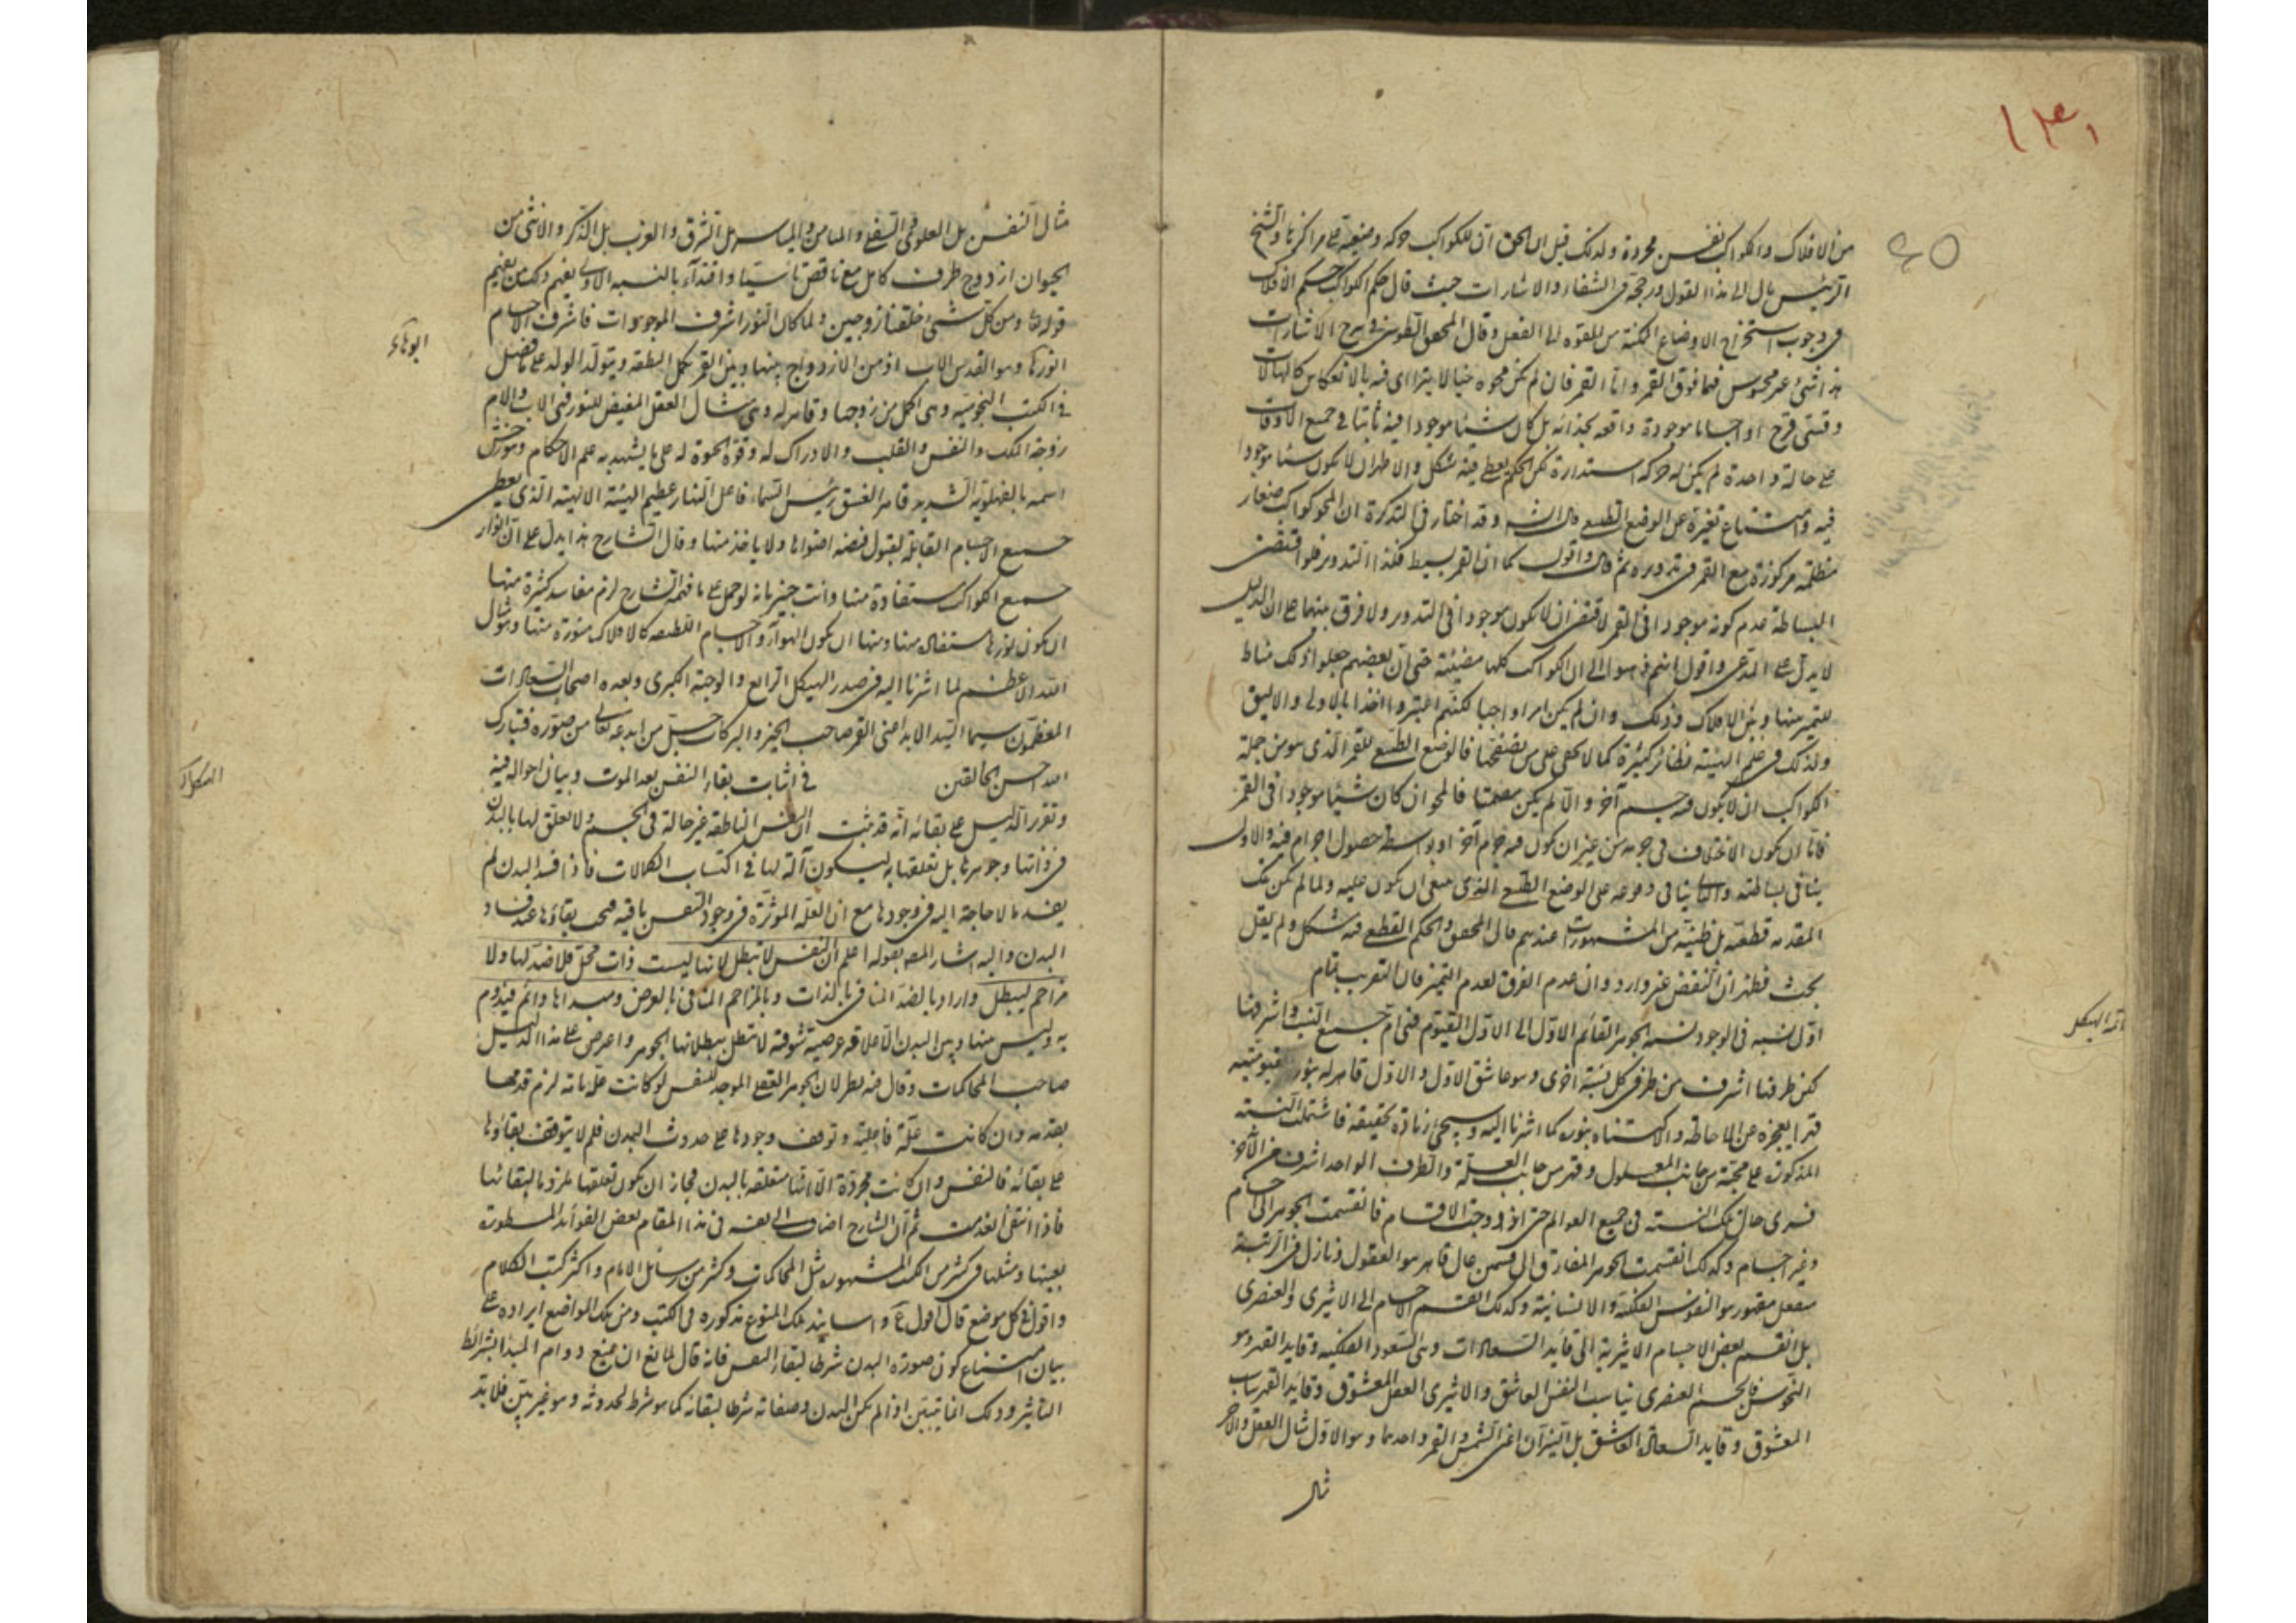 ١٣١
٤٥
من الافلاك والكواكب نفس مجردة ولذلك قيل ان الحق ان للكواكب حركة وضعية على مراكزها والشيخ
الرئيس مال الى هذا القول ورجحه فى الشفاء والاشارات حيث قال حكم الكواكب حكم الافلاك
فى وجوب استخراج الاوضاع الممكنة من القوه الى الفعل وقال المحقق الطوسى فى شرح الاشارات
هذا شئ غير محسوس فيما فوق القمر واما القمر فان لم يكن محوه خيالا يترااى فيه بالانعكاس كالهالات
وقسى قزح او اجساما موجودة واقعه بحذائه بل كان شيئا موجودا فيه ثابتا فى جميع الاوقات
على حالة واحدة لم يكن له حركه استدارة لكن الحكم القطعى فيه مشكل والاظهر ان لا يكون شيئا موجودا
فيه وامتناع تغيره عن الوضع الطبيعى وقد اختار فى التذكرة ان المحو كواكب صغار
مظلمة مركوزة مع القمر فى تدويره ثم قال واقول كما ان القمر بسيط فكذا التدوير فلو اقتضى
البساطة عدم كونه موجودا فى القمر لاقتضى ان لا يكون موجودا فى التدوير ولا فرق بينهما على ان الدليل
لا يدل على المدعى واقول انهم ذهبوا الى ان الكواكب كلها مضيئة حتى ان بعضهم جعلوا ذلك مناط
التميز بينها وبين الافلاك وذلك وان لم يكن امرا واجبا لكنهم اعتبروا اخذا بالاولى والاليق
ولذلك فى علم الهيئة نظائر كثيرة كما لا يخفى على من تصفحها فالوضع الطبيعى للقمر الذى هو من جملة
الكواكب ان لا يكون فيه جسم آخر والا لم يكن مصمتا فالمحو ان كان شيئا موجودا فى القمر
فاما ان يكون الاختلاف فى جرمه من غير ان يكون فيه جرم آخر او بواسطة حصول اجرام فيه والاول
ينافى بساطته والثانى ينافى وقوعه على الوضع الطبيعى الذى ينبغى ان يكون عليه ولما لم يكن تلك
المقدمة قطعية بل ظنية من المشهورات عندهم قال المحقق والحكم القطعى فيه مشكل ولم يقل
بحث فظهر ان النقض غير وارد وان عدم الفرق لعدم التميز فان التقريب تمام
اول نسبه فى الوجود نسبة الجوهر القائم الاول الى الاول القيوم فهى ام جميع النسب واشرفها
لكن طرفها اشرف من طرفى كل نسبة اخرى وهو عاشق الاول والاول قاهر له بنور قيوميته
قهرا يعجزه عن الاحاطة والاكتناه بنوره كما اشرنا اليه وسيجئ زيادة تحقيقه فاشتملت النسبة
المذكورة على محبة من جانب المعلول وقهر من جانب العلة والطرف الواحد اشرف من الاخر
فسرى حال تلك النسبة فى جميع العوالم حتى ازدوجت الاقسام فانقسمت الجوهر الى اجسام
وغير اجسام وكذلك انقسمت الجوهر المفارق الى قسمين عال قاهر هو العقول ونازل فى الرتبة
منفعل مقهور هو النفوس الفلكية والانسانية وكذلك انقسم الاجسام الى الاثيرى والعنصرى
بل انقسم بعض الاجسام الاثيرية الى قايد السعادات وهى السعود الفلكيه وقايد القهر وهو
النحوس فالجسم العنصرى يناسب النفس العاشق والاثيرى العقل المعشوق وقايد القهر يناسب
المعشوق وقايد السعادة العاشق بل النيران اعنى الشمس والقمر واحدهما وهو الاول مثال العقل والآخر
مثال
تمه الهيكل
مثال النفس بل العلوى والسفلى والميامن والمياسر بل الشرق والغرب بل الذكر والانثى من
الحيوان ازدوج طرف كامل مع ناقص تاسيا واقتداء بالنسبه الاولى يفهم ذلك من يفهم
قوله تعالى ومن كل شئ خلقنا زوجين ولما كان النور اشرف الموجودات فاشرف الاجسام
انورها وهو القديس الاب اذ من الازدواج بينها وبين القمر يحمل النطفه ويتولد الولد على ما فصل
فى الكتب النجوميه وهى اكمل من زوجها وقاهر له وهى مثال العقل المفيض للنور فهى الاب والام
زوجة الملك والنفس والقلب والادراك له وقوة الحيوة له على ما يشهد به علم الاحكام وهورخش
اسمه بالفهلويه الشديد قاهر الغسق رئيس السماء فاعل النهار عظيم الهيئة الالهية الذى يعطى
جميع الاجسام القابلة لقبول فيضه اضوائها ولا ياخذ منها وقال الشارح هذا يدل على ان انوار
جميع الكواكب مستفادة منها وانت خبير بانه لو حمل على ما فهمه الشارح لزم مفاسد كثيرة منها
ان يكون نورها مستفاد منها ومنها ان يكون الهواء والاجسام اللطيفه كالافلاك منورة منها وهو مثال
الله الاعظم لما اشرنا اليه فى صدر الهيكل الرابع والوجهة الكبرى وبعده اصحاب السعادات
المعظمون سيما السيد الابد اعنى القمر صاحب الخير والبركات جل من ابدعه تعالى من صوره فتبارك
الله احسن الخالقين فى اثبات بقاء النفس بعد الموت وبيان احواله فيه
وتقرر الدليل على بقائه انه قد ثبت ان النفس الناطقه غير حالة فى الجسم ولا تعلق لها بالبدن
فى ذاتها وجوهرها بل تعلقها به ليكون آلة لها فى اكتساب الكمالات فاذا فسد البدن لم
يفسد ما لا حاجة اليه فى وجودها مع ان العلة الموثرة فى وجود النفس باقيه فيجب بقاؤها عند فساد
البدن واليه اشار المصـ بقوله اعلم ان النفس لا تبطل لانها ليست ذات محل فلا ضد لها ولا
مزاحم ليبطل واراد بالضد المنافى بالذات وبالمزاحم المنافى بالعرض ومبداها دائم فيدوم
به وليس بينها وبين البدن الا علاقه عرضية شوقية لا تبطل ببطلانها الجوهر واعرض على هذا الدليل
صاحب المحاكمات وقال فيه نظر لان الجوهر العقلى الموجد للنفس لو كانت علة تامة لزم قدمها
بقدمه وان كانت علة فاعلية وتوقف وجودها على حدوث البدن فلم لا يتوقف بقاؤها
على بقائه فالنفس وان كانت مجردة الا انها متعلقه بالبدن فجاز ان يكون تعلقها شرطا لبقائها
فاذا انتفى انعدمت ثم ان الشارح اضاف الى نفسه فى هذا المقام بعض الفوائد المسطورة
بعينها ومثلها فى كثير من الكتب المشهوره مثل المحاكمات وكثير من رسائل الامام واكثر كتب الكلام
واقول فى كل موضع قال اقول واسانيد تلك المنوع مذكوره فى الكتب ومن تلك المواضع ايراده على
بيان امتناع كون صورة البدن شرطا لبقاء النفس فانه قال لمانع ان يمنع دوام المبدا بشرائط
التاثير وذلك انما يتبين اذا لم يكن البدن وصفاته شرطا لبقائه كما هو شرط لحدوثه وهو غير بين فلا بد